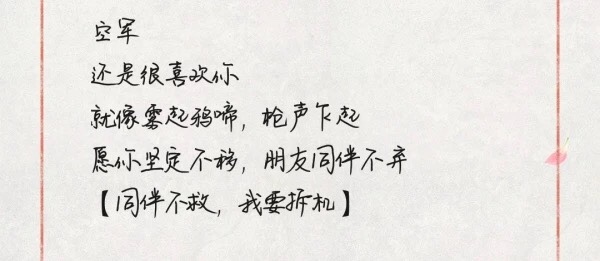 空军
还是很喜欢你
就像雾起鸦啼，枪声乍起
愿你坚定不移，朋友同伴不弃
【同伴不救，我要拆机】